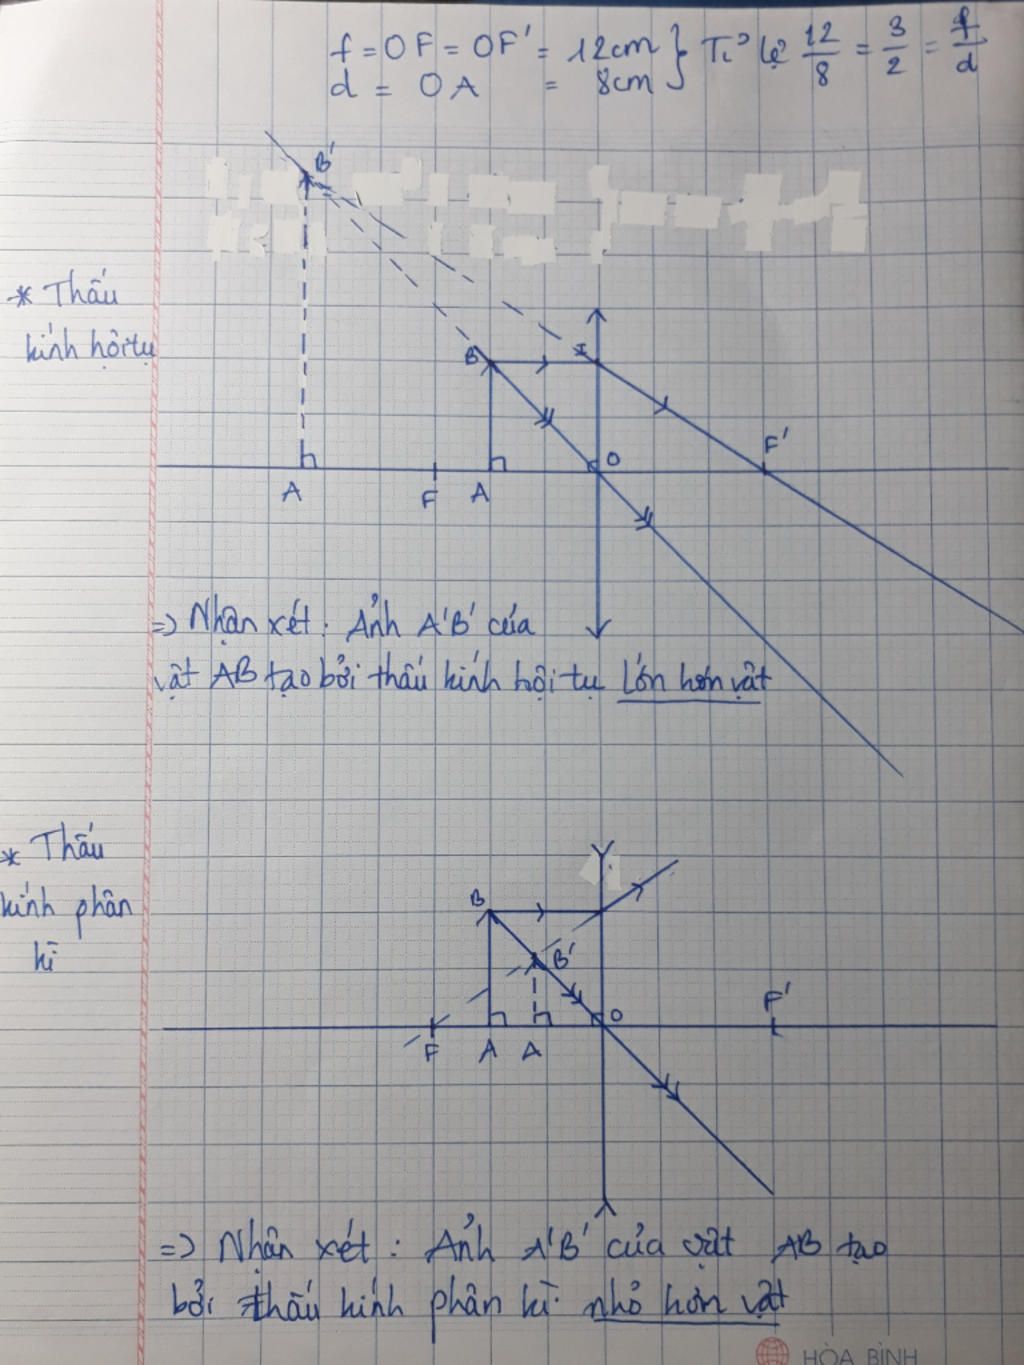 f = OF = OF' = 12cm } Tỉ lệ 12/8 = 3/2 = f/d
d = OA = 8cm
B'
* Thấu
kính hội tụ
B I
F'
O
A F A
=> Nhận xét: Ảnh A'B' của
vật AB tạo bởi thấu kính hội tụ lớn hơn vật
* Thấu
kính phân
kì
B
B'
O F'
F A A
=> Nhận xét: Ảnh A'B' của vật AB tạo
bởi thấu kính phân kì nhỏ hơn vật
HÒA BÌNH